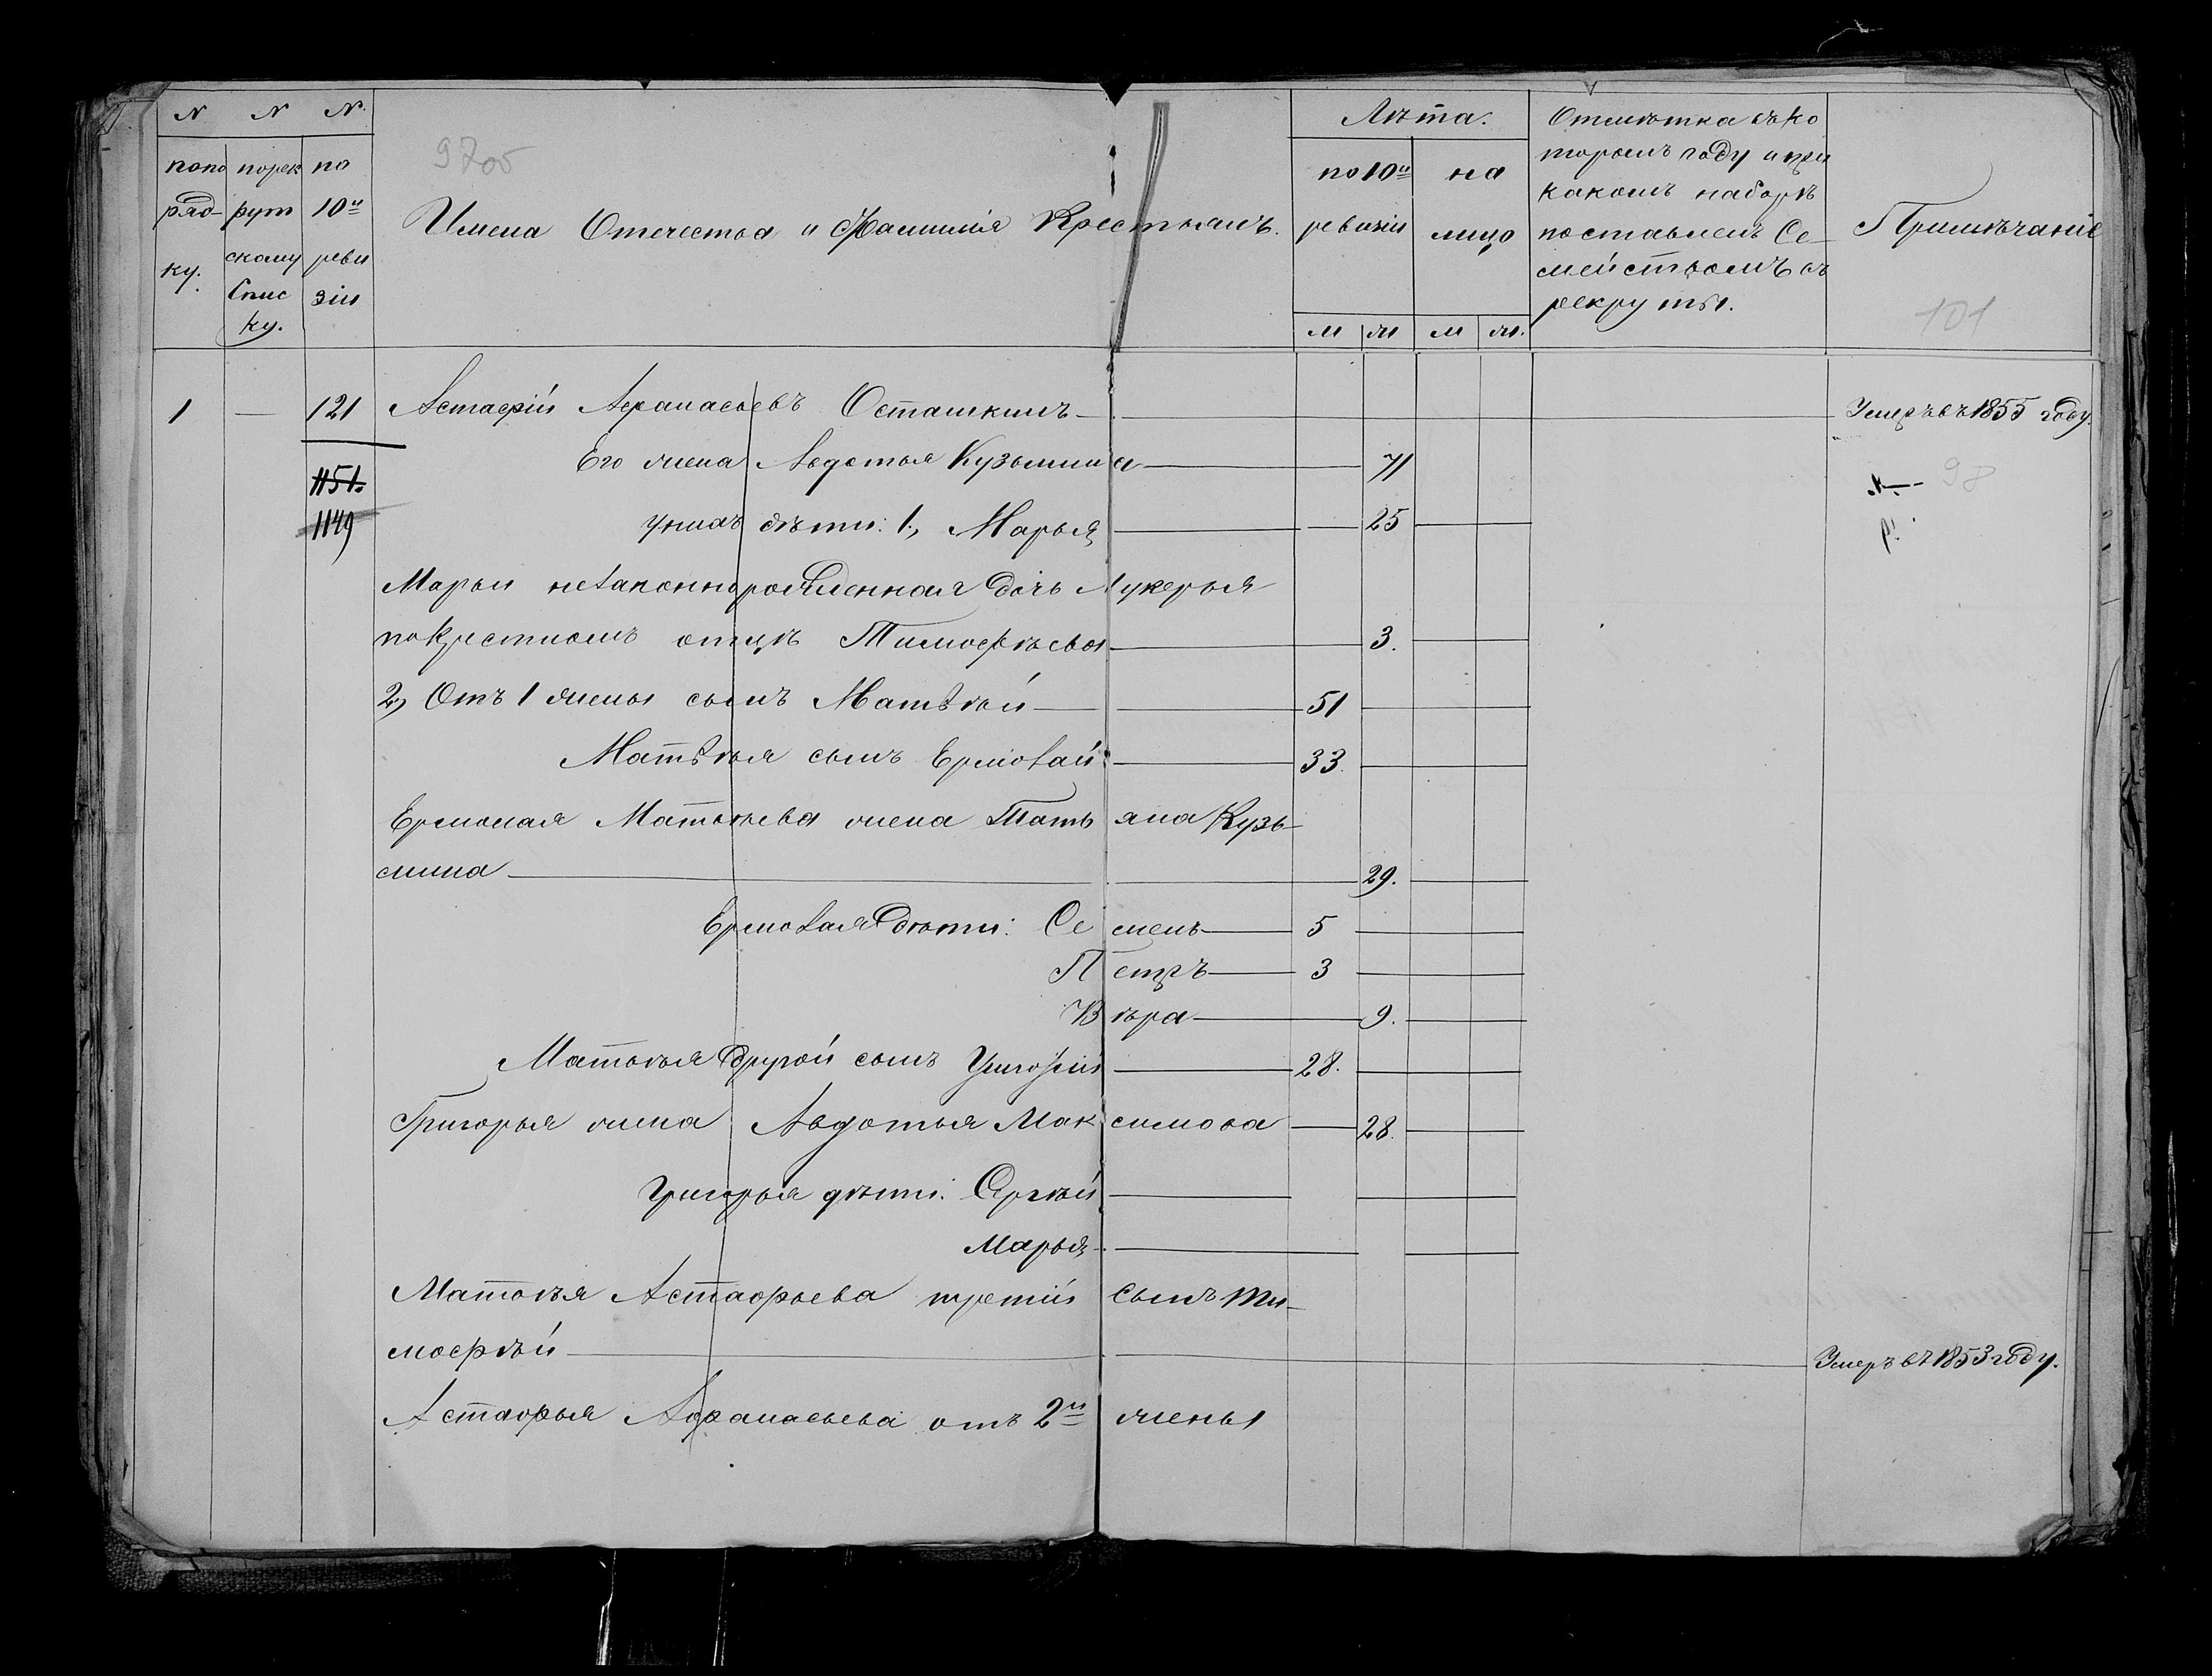 N N N.
попо
ряд-
ку.
порек
рут
скому
Спис
ку.
по
10й
реви
зіи
9700
Имена Отечества и Фамилія Крестьянъ.
Лѣта.
по 10й
ревизіи
на
лицо
м ж м ж.
Отмѣтка въ ко
торомъ году и при
какомъ наборѣ
поставленъ Се-
мействомъ въ
рекруты.
Примѣчаніе
101
1 — 121 Астафій Афанасьевъ Осташкинъ — Умеръ въ 1855 году.
Его жена Авдотья Кузьмина — 71
1151.
98
1149
у нихъ дѣти: 1, Марья — 25
Марьи незаконнорожденная дочь Лукерья
по крестномъ отцѣ Тимофѣева — 3.
2, Отъ 1 жены сынъ Матвѣй — 51
Матвѣя сынъ Ермолай — 33.
Ермолая Матвѣева жена Татьяна Кузь-
мина — 29.
Ермолая дѣти: Семенъ — 5
Петръ — 3
Вѣра — 9.
Матвѣя другой сынъ Григорій — 28.
Григорья жена Авдотья Максимова — 28.
Григорья дѣти: Сергѣй —
Марья —
Матвѣя Астафьева третій сынъ Ти-
мофѣй — Умеръ въ 1853 году.
Астафья Афанасьева отъ 2й жены